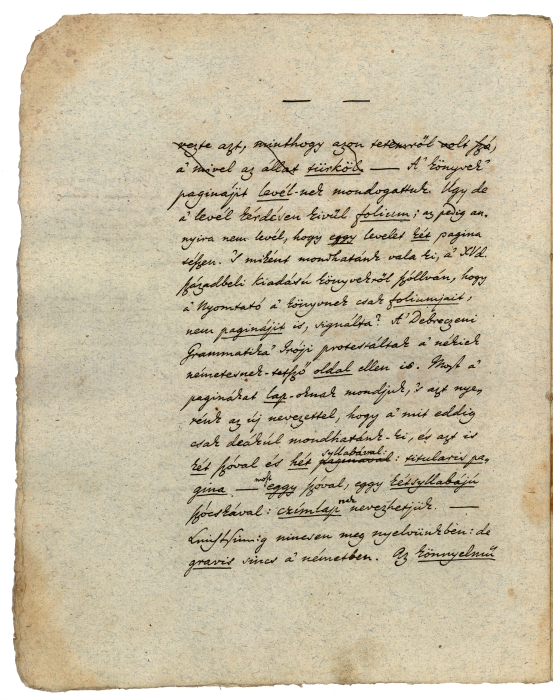 — —
vezte azt, minthogy azon tetemről volt szó,
a' mivel az állat türköl — A' könyvek'
paginájit levél-nek mondogattuk. Ugy de
a' levél kérdésen kivűl folium; az pedig an-
nyira nem levél, hogy egy levelet két pagina
tészen. 's miként mondhatánk vala ki, a' XVd.
századbeli kiadású könyvekről szóllván, hogy
a' Nyomtató a' könyvnek csak foliumjait,
nem paginájit is, signálta? A' Debreczeni
Grammatika' Iróji protestáltak a' nékiek
németesnek-tetsző oldal ellen is. Most a'
paginákat lap-oknak mondjuk, 's azt nye-
rénk az új nevezettel, hogy a' mit eddig
csak deákúl mondhatánk-ki, és azt is
két szóval és hét syllabával: titularis pa-
gina — most eggy szóval, eggy kétsyllabájú
szócskával: czímlapnak nevezhetjük. —
nincsen meg nyelvünkben: de
gravis sincs a' németben. Az könnyelmű